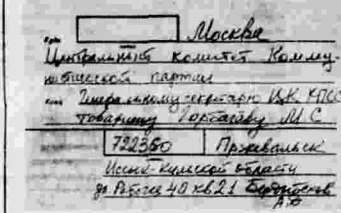 Москва
Центральный комитет Комму-
нистической партии
Генеральному секретарю ЦК КПСС
товарищу Горбачёву М С
722360 Пржевальск
Иссык-Кульской области
40 кв 21